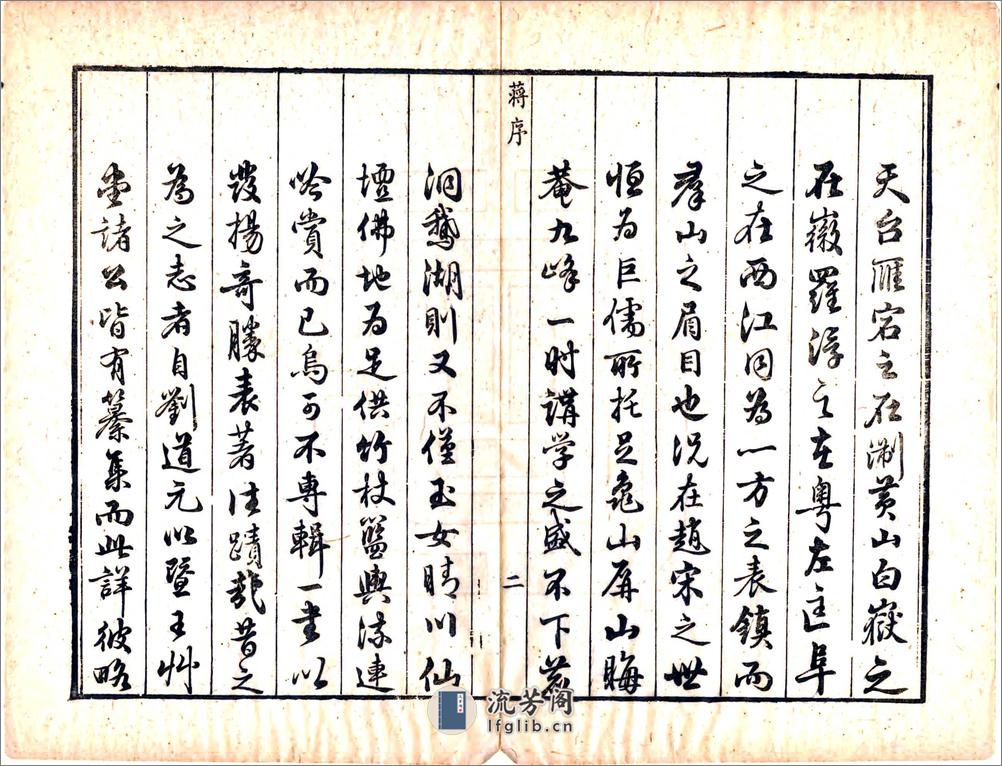 天台雁宕之在浙黄山白嶽之
在徽羅浮之在粵左匡阜
之在西江同為一方之表鎮而
羣山之眉目也况在趙宋之世
恒为巨儒所托足龜山屏山晦
菴九峰一时講学之盛不下鹿
蔣序
二
洞鵝湖則又不僅玉女晴川仙
壇佛地为足供竹杖籃輿流連
吟賞而已烏可不專輯一書以
發揚奇勝表著往蹟哉昔之
為之志者自劉道元以暨王艸
堂諸公皆有纂集而此詳彼略
流芳阁
lfglib.cn